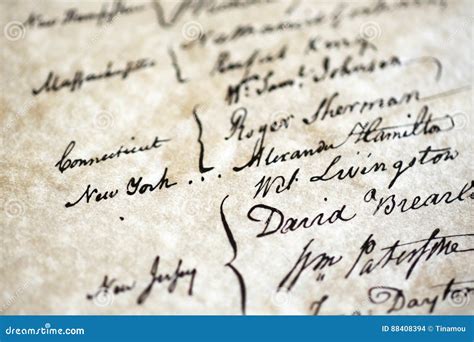 New Hampshire {
Massachusetts { Nathaniel Gorham
Rufus King
Connecticut { Wm. Saml. Johnson
Roger Sherman
New York . . . Alexander Hamilton
New Jersey { Wil. Livingston
David Brearl
Wm Paterson
Dayton
dreamstime.com
ID 88408394 © Tinamou